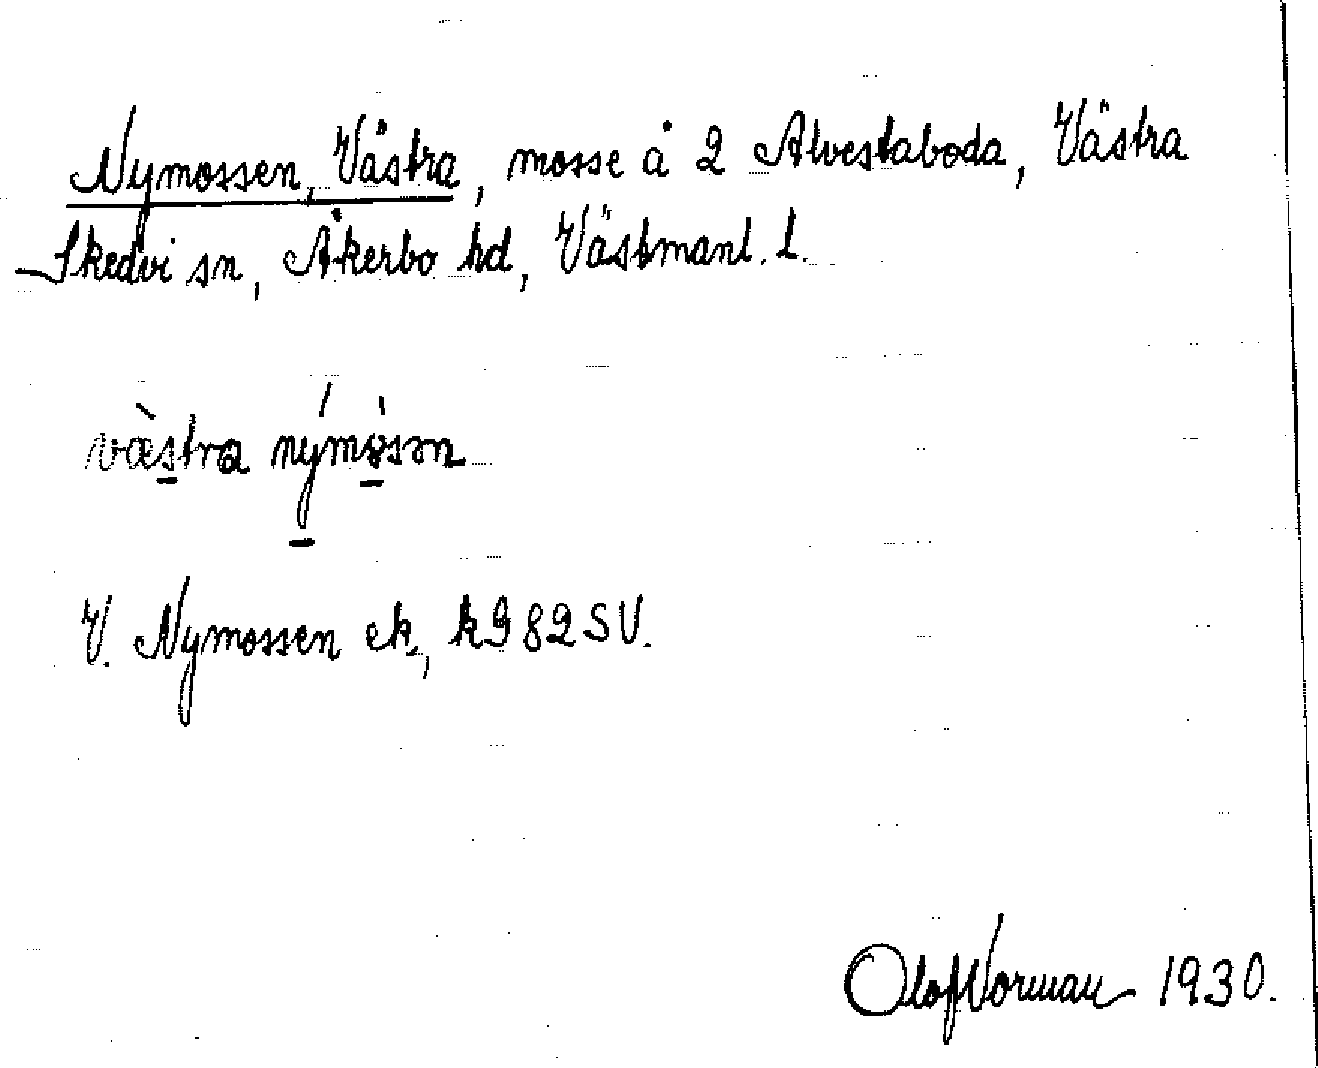 Nymossen, Västra, mosse å 2 Alvestaboda, Västra
Skedvi sn, Åkerbo hd, Västmanl. l.
væ̀stra nýmòsən
V. Nymossen ek, k982SV.
Olof Norman 1930.